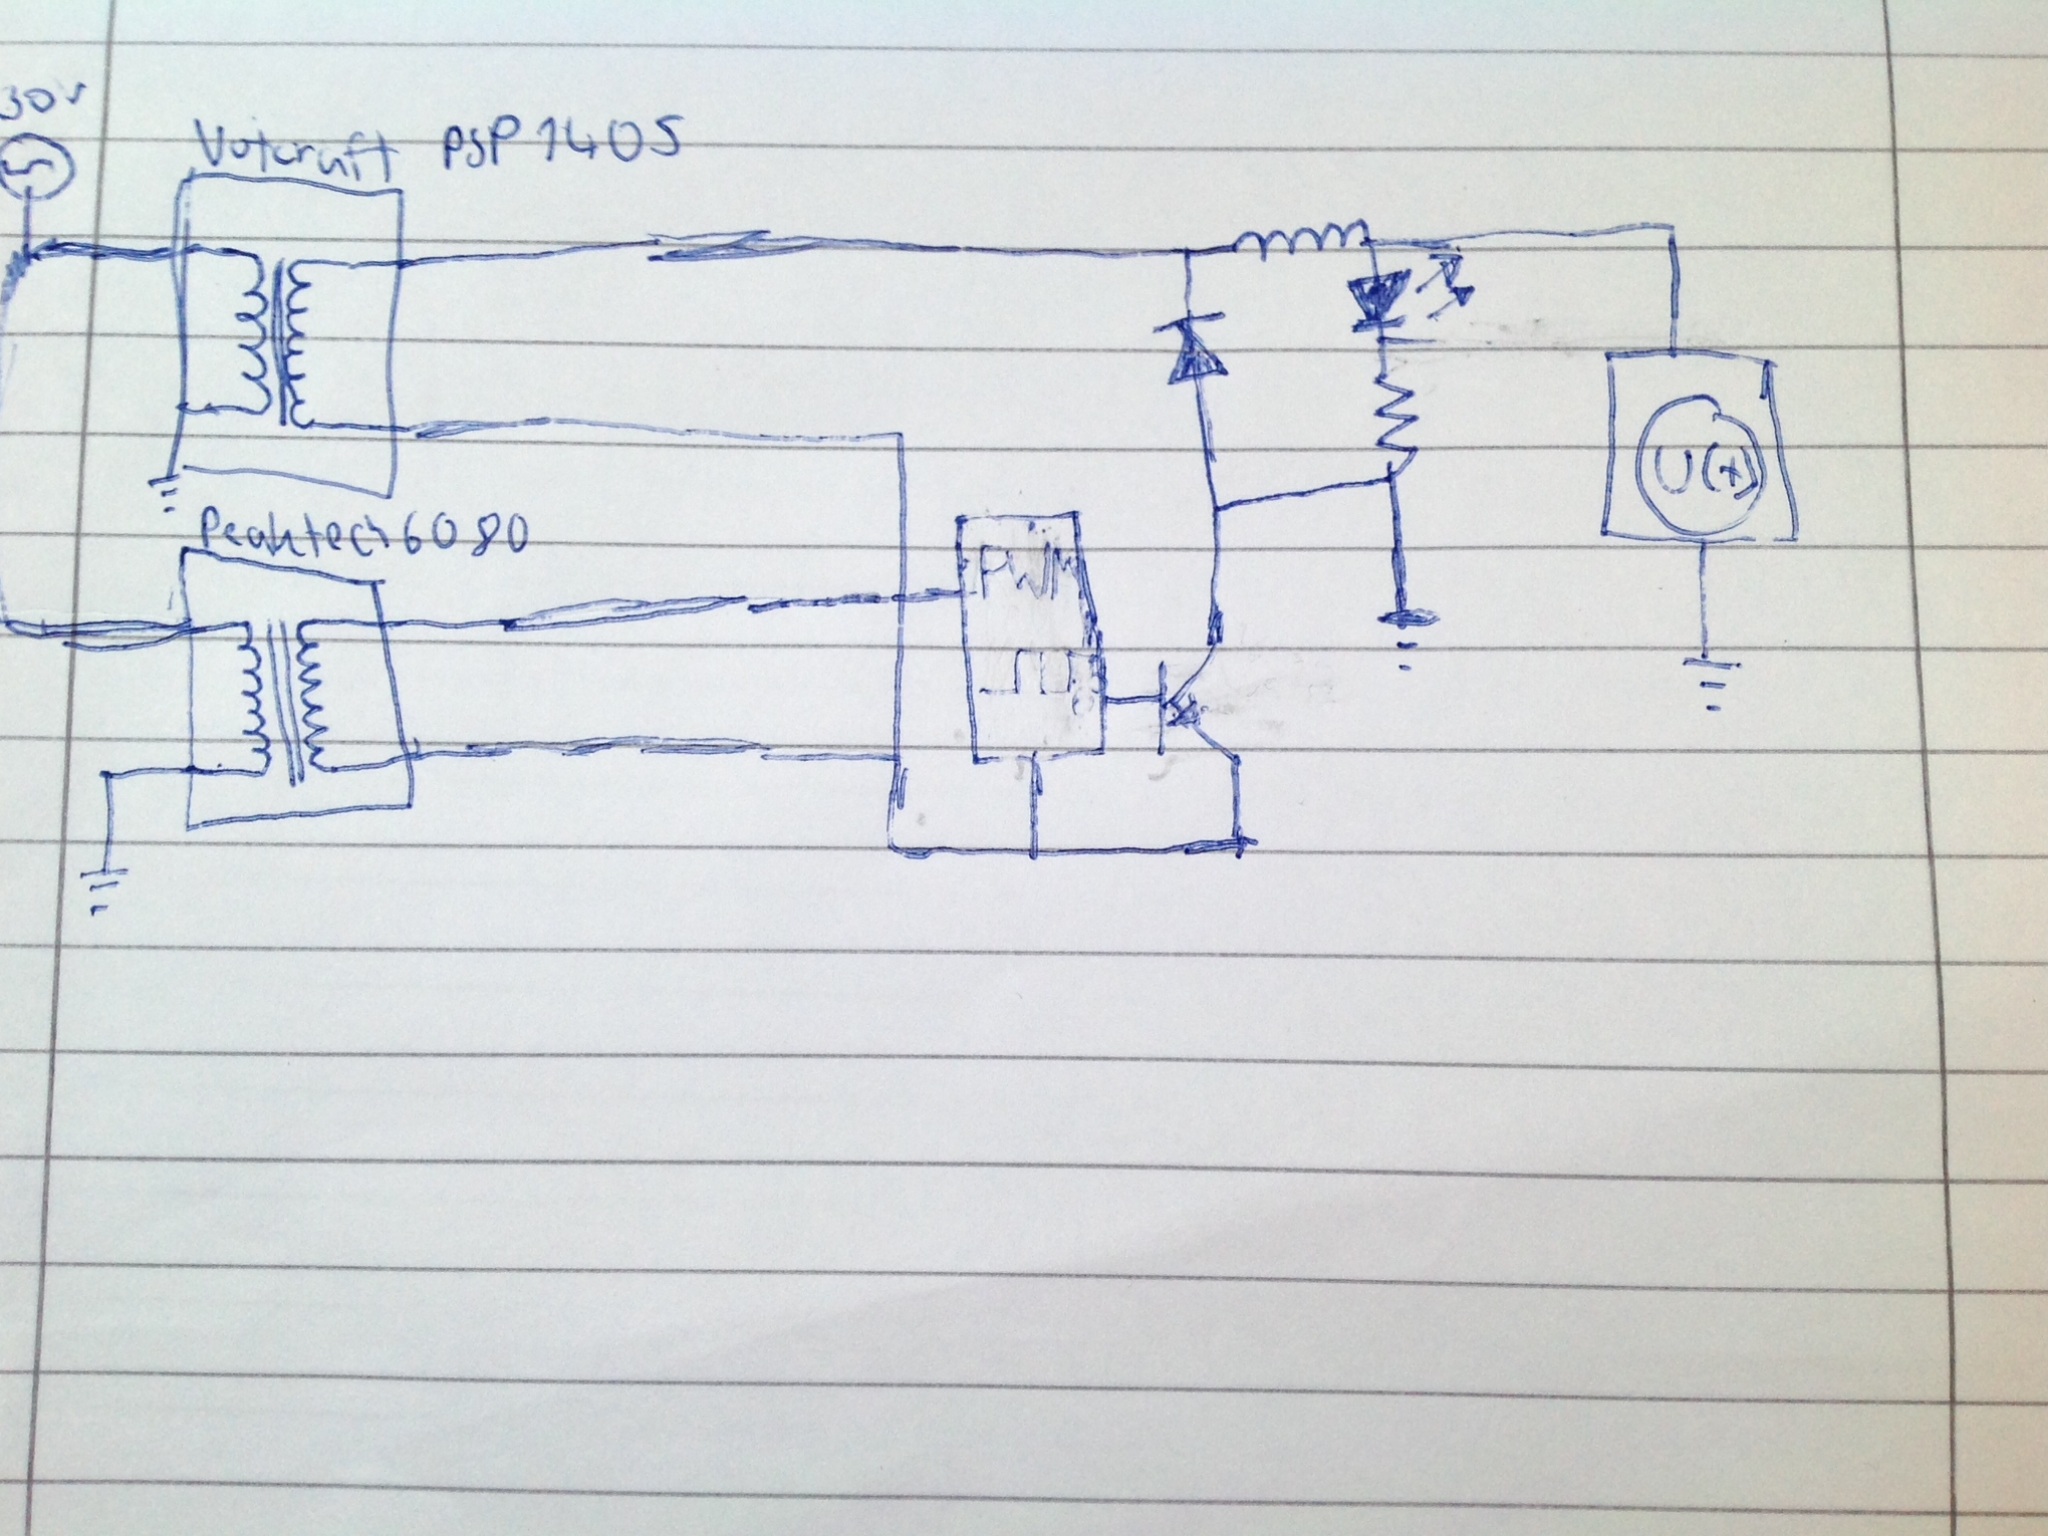 30v
Votcraft PSP 1405
Peaktech 6080
PWM
U(t)